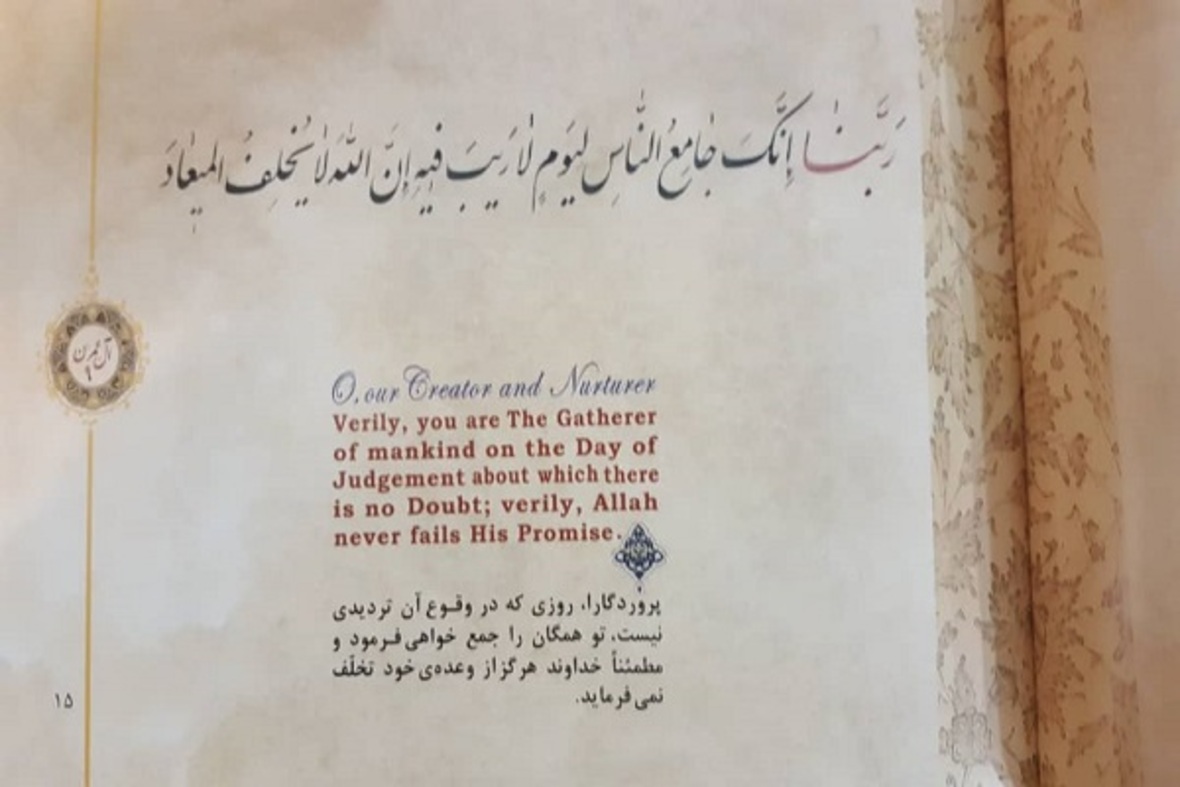 رَبَّنٰا إِنَّكَ جٰامِعُ النّٰاسِ لِيَومٍ لٰا رَيبَ فيٖهِ إِنَّ اللّٰهَ لٰا يُخلِفُ الميعٰادَ
آل عمرٰن
٩
O, our Creator and Nurturer
Verily, you are The Gatherer
of mankind on the Day of
Judgement about which there
is no Doubt; verily, Allah
never fails His Promise.
پروردگارا، روزی که در وقـوع آن تردیدی
نیست، تو همگان را جمع خواهی فـرمود و
مطمئناً خداوند هرگز از وعده‌ی خود تخلّف
نمی فرماید.
۱۵